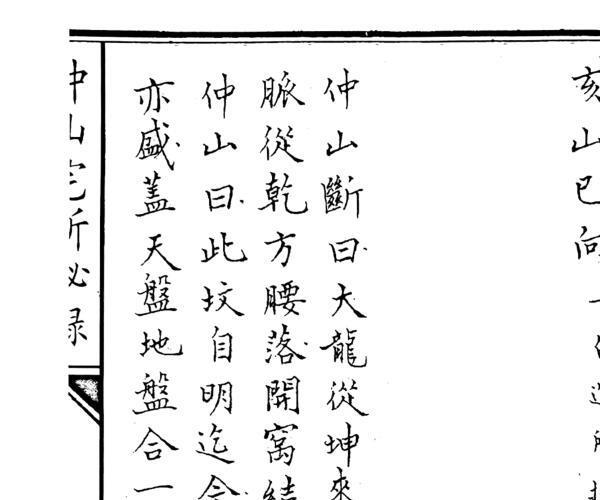 亥山巳向
仲山斷曰大龍從坤來
脈從乾方腰落開窩結
仲山曰此坟自明迄今
亦盛蓋天盤地盤合一
仲山宅斷秘录